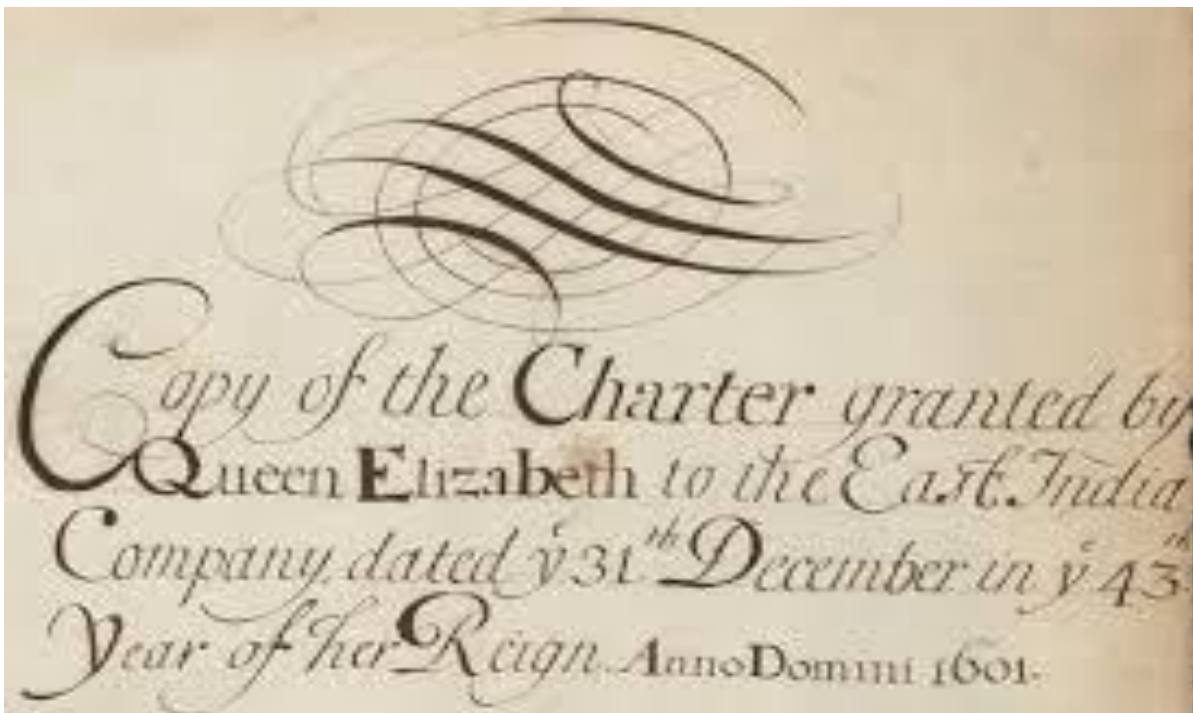 Copy of the Charter granted by
Queen Elizabeth to the East India
Company, dated yͤ 31th December in yͤ 43th
Year of her Reign. Anno Domini 1601.